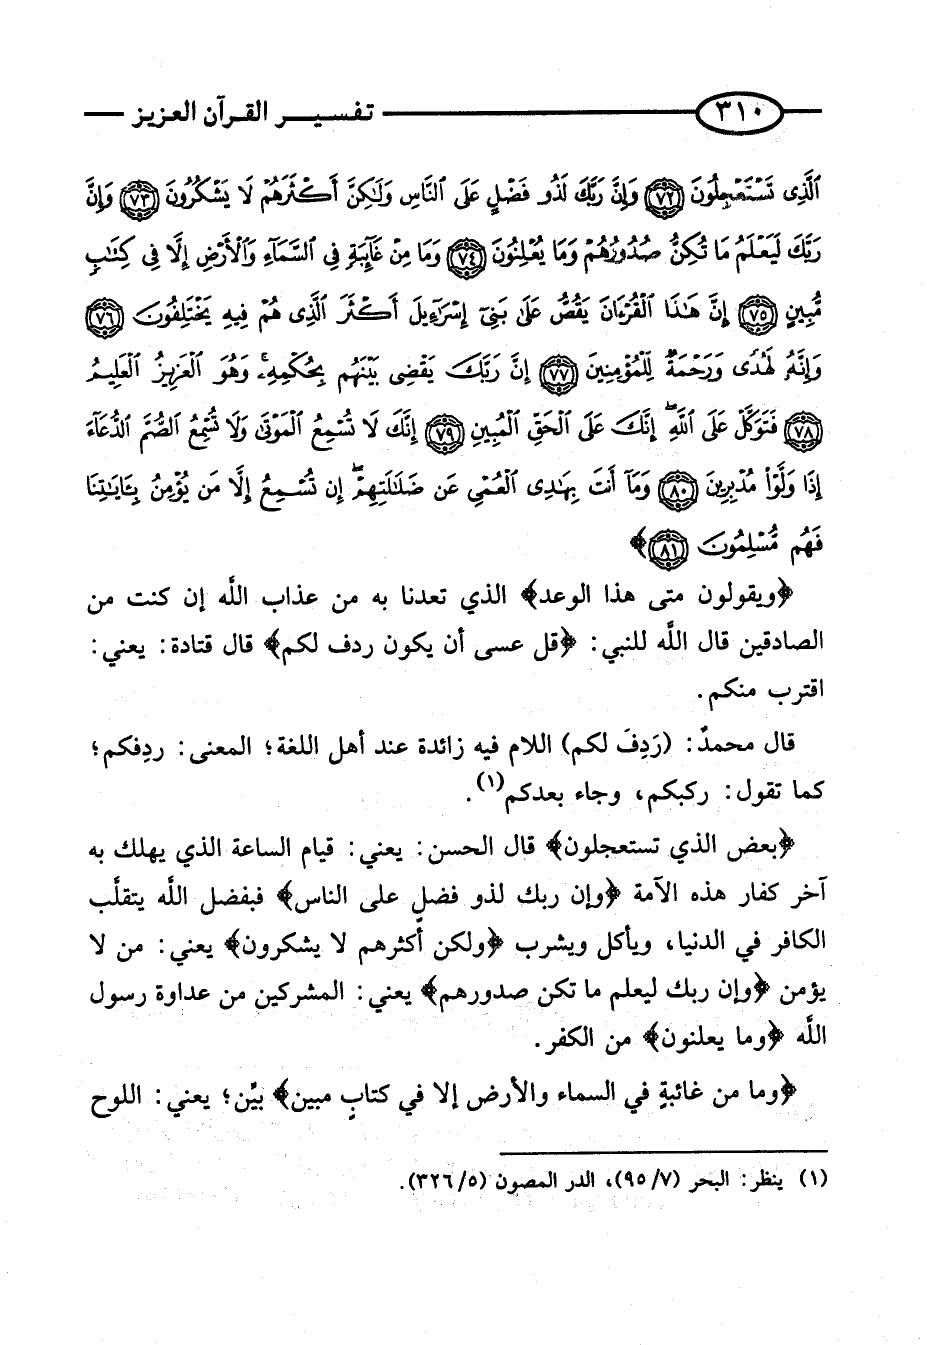 ٣١٠ تفسير القرآن العزيز
ٱلَّذِى تَسْتَعْجِلُونَ ﴿٧٢﴾ وَإِنَّ رَبَّكَ لَذُو فَضْلٍ عَلَى ٱلنَّاسِ وَلَٰكِنَّ أَكْثَرَهُمْ لَا يَشْكُرُونَ ﴿٧٣﴾ وَإِنَّ
رَبَّكَ لَيَعْلَمُ مَا تُكِنُّ صُدُورُهُمْ وَمَا يُعْلِنُونَ ﴿٧٤﴾ وَمَا مِنْ غَآئِبَةٍ فِى ٱلسَّمَآءِ وَٱلْأَرْضِ إِلَّا فِى كِتَٰبٍ
مُّبِينٍ ﴿٧٥﴾ إِنَّ هَٰذَا ٱلْقُرْءَانَ يَقُصُّ عَلَىٰ بَنِىٓ إِسْرَٰٓءِيلَ أَكْثَرَ ٱلَّذِى هُمْ فِيهِ يَخْتَلِفُونَ ﴿٧٦﴾
وَإِنَّهُۥ لَهُدًى وَرَحْمَةٌ لِّلْمُؤْمِنِينَ ﴿٧٧﴾ إِنَّ رَبَّكَ يَقْضِى بَيْنَهُم بِحُكْمِهِۦ وَهُوَ ٱلْعَزِيزُ ٱلْعَلِيمُ
﴿٧٨﴾ فَتَوَكَّلْ عَلَى ٱللَّهِ ۖ إِنَّكَ عَلَى ٱلْحَقِّ ٱلْمُبِينِ ﴿٧٩﴾ إِنَّكَ لَا تُسْمِعُ ٱلْمَوْتَىٰ وَلَا تُسْمِعُ ٱلصُّمَّ ٱلدُّعَآءَ
إِذَا وَلَّوْا۟ مُدْبِرِينَ ﴿٨٠﴾ وَمَآ أَنتَ بِهَٰدِى ٱلْعُمْىِ عَن ضَلَٰلَتِهِمْ ۖ إِن تُسْمِعُ إِلَّا مَن يُؤْمِنُ بِـَٔايَٰتِنَا
فَهُم مُّسْلِمُونَ ﴿٨١﴾﴾
﴿ويقولون متى هذا الوعد﴾ الذي تعدنا به من عذاب اللَّه إن كنت من
الصادقين قال اللَّه للنبي: ﴿قل عسى أن يكون ردف لكم﴾ قال قتادة: يعني:
اقترب منكم.
قال محمدٌ: (رَدِفَ لكم) اللام فيه زائدة عند أهل اللغة؛ المعنى: ردِفكم؛
كما تقول: ركبكم، وجاء بعدكم(١).
﴿بعض الذي تستعجلون﴾ قال الحسن: يعني: قيام الساعة الذي يهلك به
آخر كفار هذه الآمة ﴿وإن ربك لذو فضلٍ على الناس﴾ فبفضل اللَّه يتقلَّب
الكافر في الدنيا، ويأكل ويشرب ﴿ولكن أكثرهم لا يشكرون﴾ يعني: من لا
يؤمن ﴿وإن ربك ليعلم ما تكن صدورهم﴾ يعني: المشركين من عداوة رسول
اللَّه ﴿وما يعلنون﴾ من الكفر.
﴿وما من غائبةٍ في السماء والأرض إلا في كتابٍ مبين﴾ بيِّن؛ يعني: اللوح
(١) ينظر: البحر (٩٥/٧)، الدر المصون (٣٢٦/٥).